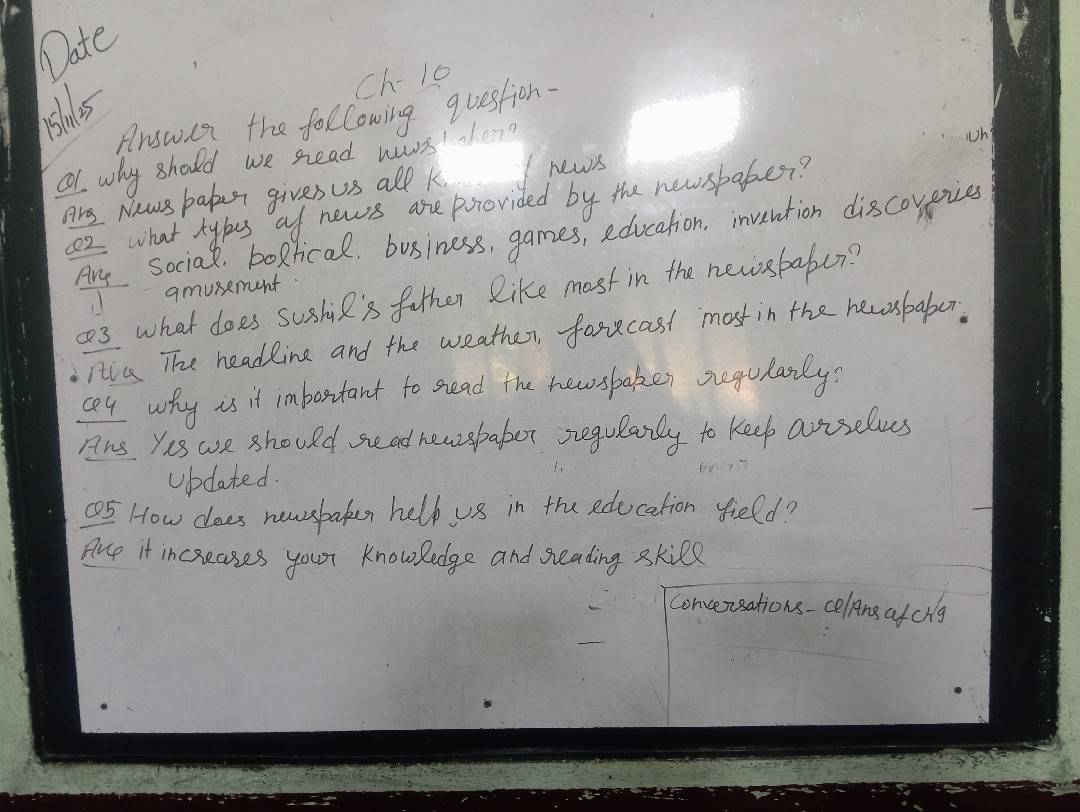 Date
15/11/25
Ch- 10
Answer the following question-
Q1 why should we read newspaper?
Ans News paper gives us all of news
Q2 what types of news are provided by the newspaper?
Ans Social, political, business, games, education, invention discoveries
amusement.
Q3 what does Sushil's father like most in the newspaper?
Ans The headline and the weather, forecast most in the newspaper.
Q4 why is it important to read the newspaper regularly?
Ans Yes we should read newspaper regularly to keep ourselves
updated.
Q5 How does newspaper help us in the education field?
Ans it increases your knowledge and reading skill
Conversations - Q/Ans of Ch 9